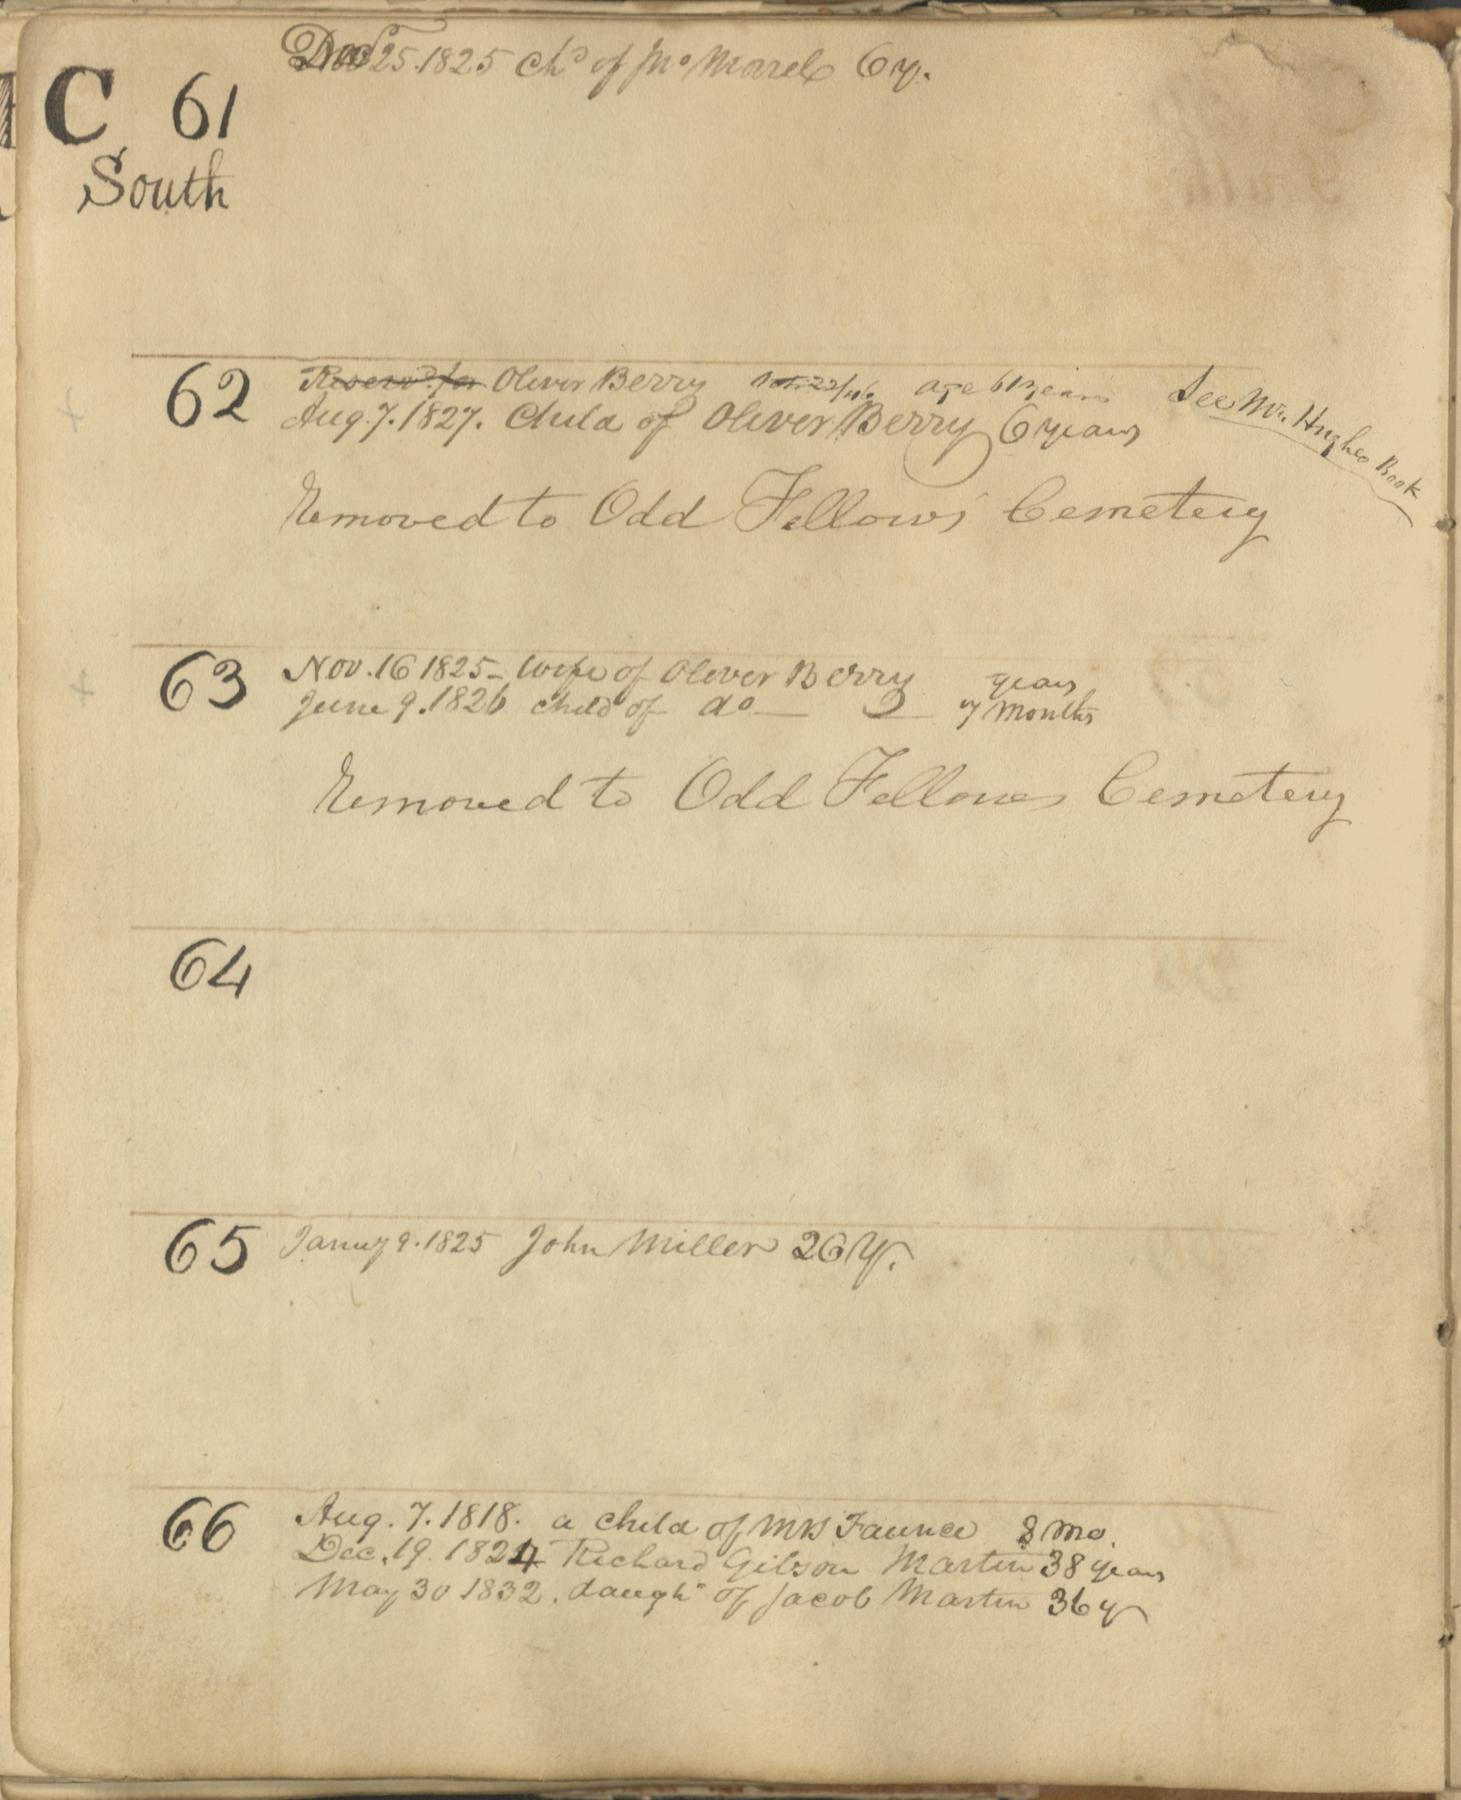 C 61 25. 1825 Chd of Mc 6 y.
South
62 Reservd for Oliver Berry age 61 years See Mr. Hughes Book
Aug. 7. 1827. Child of Oliver Berry 6 years
Removed to Odd Fellows' Cemetery
63 Nov. 16 1825 - Wife of Oliver Berry years
June 9. 1826 child of do — 2 — 7 Months
Removed to Odd Fellows Cemetery
64
65 Januy 9. 1825 John Miller 26 Y.
66 Aug. 7. 1818. a child of Mrs Faunce 8 mo.
Dec. 19. 1824 Richard Gilson Martin 38 years
May 30 1832. daugh" of Jacob Martin 36 y